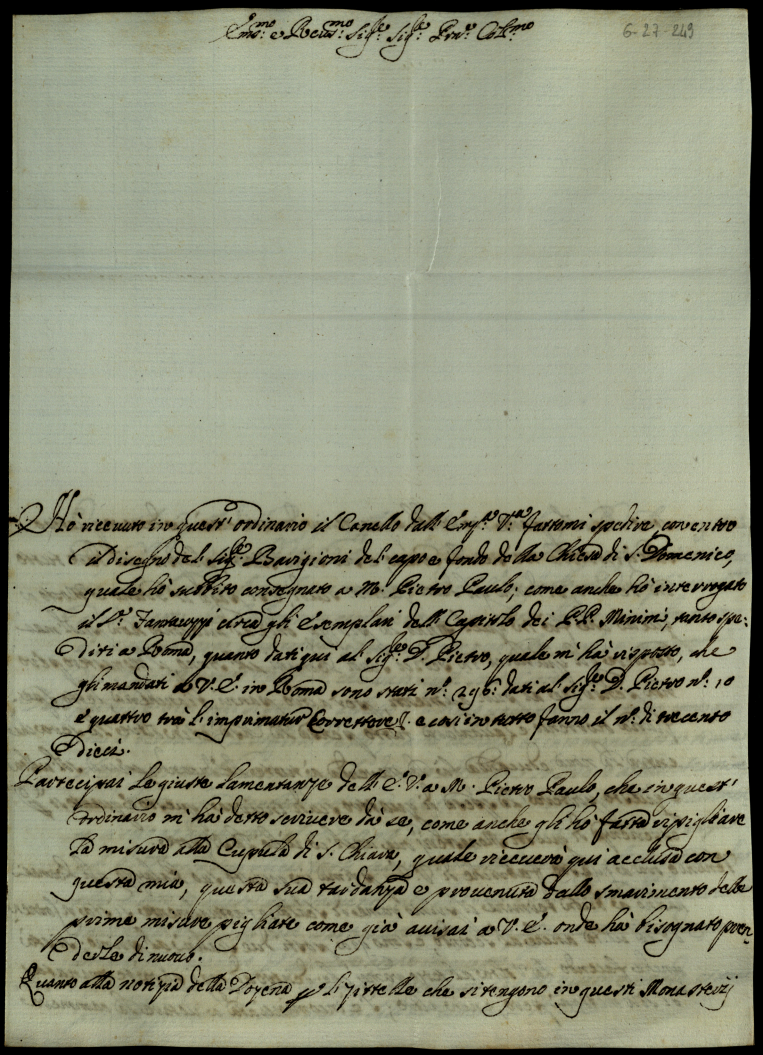 Em.mo e Reu.mo Sig.re Sig.re Prn̄e Col.mo
6-27-249
Hò riceuuto in quest' ordinario il Canello dall' Em.za V.ra fattomi spedire, con entro
il disegno del Sig.re Rauigioni del capo e fondo della Chiesa di S. Domenico,
quale hò subbito consegnato a M.o Pietro Paulo; come anche hò interrogato
il S.r Fantauzzi circa gli esemplari dell Capitolo dei P.P. Minimi, tanto spe:
diti a Roma, quanto dati qui al Sig.re D. Pietro, quale m' hà risposto, che
gli mandati a V. E. in Roma sono stati n.o 296: dati al Sig.re D. Pietro n.o 10
e quattro trà l' imprimatur Correttore e così in tutto fanno il n.o di trecento
dieci.
Partecipai le giuste lamentanze dell' E. V. a M.o Pietro Paulo, che in quest'
ordinario m' hà detto scriuere dà se, come anche gli hò fatta ripigliare
la misura alla Cupula di S. Chiara, quale riceuerà qui acclusa con
questa mia, questa sua tardanza è prouenuta dallo smarimento delle
prime misure pigliate come già auisai a V. E. onde hà bisognato pren-
derle di nuouo.
Quanto alla notizia della Dozena p̄ l' zittelle che si tengono in questi Monasterij